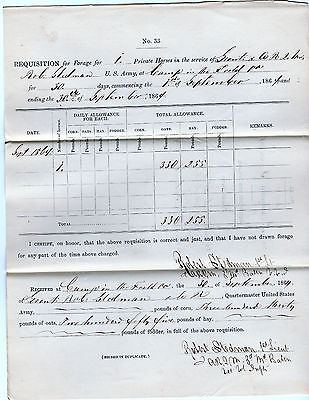 No. 33
REQUISITION for Forage for 1. Private Horses in the service of Lieut & A. R. Q. M.
Rob. Stedman U. S. Army, at Camp in the Field Va.
for 30 days, commencing the 1st of September 1864, and
ending the 30th of September 1864.
DATE. Number of Horses. DAILY ALLOWANCE FOR EACH. TOTAL ALLOWANCE. REMARKS.
CORN. OATS. HAY. FODDER. CORN. OATS. HAY. FODDER.
Sept 1864. 1. 330 255.
TOTAL 330 255.
I CERTIFY, on honor, that the above requisition is correct and just, and that I have not drawn forage
for any part of the time above charged.
Robert Stedman 1st Lt
RECEIVED at Camp in the Field Va. the 30 of September 1864,
of Lieut Rob. Stedman Quartermaster United States
Army, pounds of corn, Three hundred thirty
pounds of oats, Two hundred fifty five pounds of hay,
pounds of fodder, in full of the above requisition.
[SIGNED IN DUPLICATE.]
Robert Stedman 1st Lieut